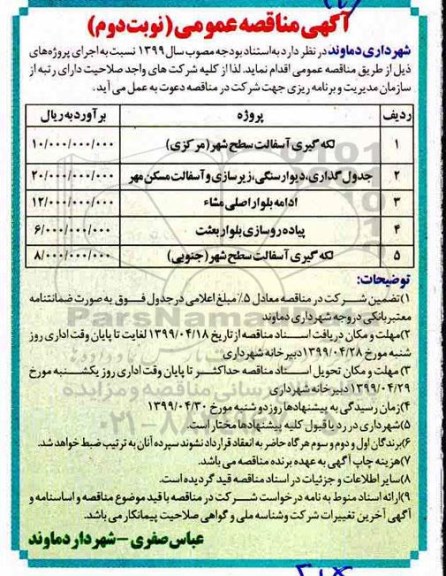 آگهی مناقصه عمومی (نوبت دوم)
شهرداری دماوند در نظر دارد به استناد بودجه مصوب سال ۱۳۹۹ نسبت به اجرای پروژه‌های
ذیل از طریق مناقصه عمومی اقدام نماید. لذا از کلیه شرکت های واجد صلاحیت دارای رتبه از
سازمان مدیریت و برنامه ریزی جهت شرکت در مناقصه دعوت به عمل می آید.
ردیف پروژه برآورد به ریال
۱ لکه گیری آسفالت سطح شهر (مرکزی) ۱۰/۰۰۰/۰۰۰/۰۰۰
۲ جدول گذاری، دیوار سنگی، زیرسازی و آسفالت مسکن مهر ۲۰/۰۰۰/۰۰۰/۰۰۰
۳ ادامه بلوار اصلی مشاء ۱۲/۰۰۰/۰۰۰/۰۰۰
۴ پیاده روسازی بلوار بعثت ۶/۰۰۰/۰۰۰/۰۰۰
۵ لکه گیری آسفالت سطح شهر (جنوبی) ۸/۰۰۰/۰۰۰/۰۰۰
توضیحات:
۱) تضمین شرکت در مناقصه معادل ۵٪ مبلغ اعلامی در جدول فوق به صورت ضمانتنامه
معتبر بانکی در وجه شهرداری دماوند
۲) مهلت و مکان دریافت اسناد مناقصه از تاریخ ۱۳۹۹/۰۴/۱۸ لغایت تا پایان وقت اداری روز
شنبه مورخ ۱۳۹۹/۰۴/۲۸ دبیرخانه شهرداری
۳) مهلت و مکان تحویل اسناد مناقصه حداکثر تا پایان وقت اداری روز یکشنبه مورخ
۱۳۹۹/۰۴/۲۹ دبیرخانه شهرداری
۴) زمان رسیدگی به پیشنهادها روز دو شنبه مورخ ۱۳۹۹/۰۴/۳۰
۵) شهرداری در رد یا قبول کلیه پیشنهادها مختار است.
۶) برندگان اول و دوم و سوم هرگاه حاضر به انعقاد قرارداد نشوند سپرده آنان به ترتیب ضبط خواهد شد.
۷) هزینه چاپ آگهی به عهده برنده مناقصه می باشد.
۸) سایر اطلاعات و جزئیات در اسناد مناقصه قید گردیده است.
۹) ارائه اسناد منوط به نامه درخواست شرکت در مناقصه با قید موضوع مناقصه و اساسنامه و
آگهی آخرین تغییرات شرکت وشناسه ملی و گواهی صلاحیت پیمانکار می باشد.
عباس صفری - شهردار دماوند